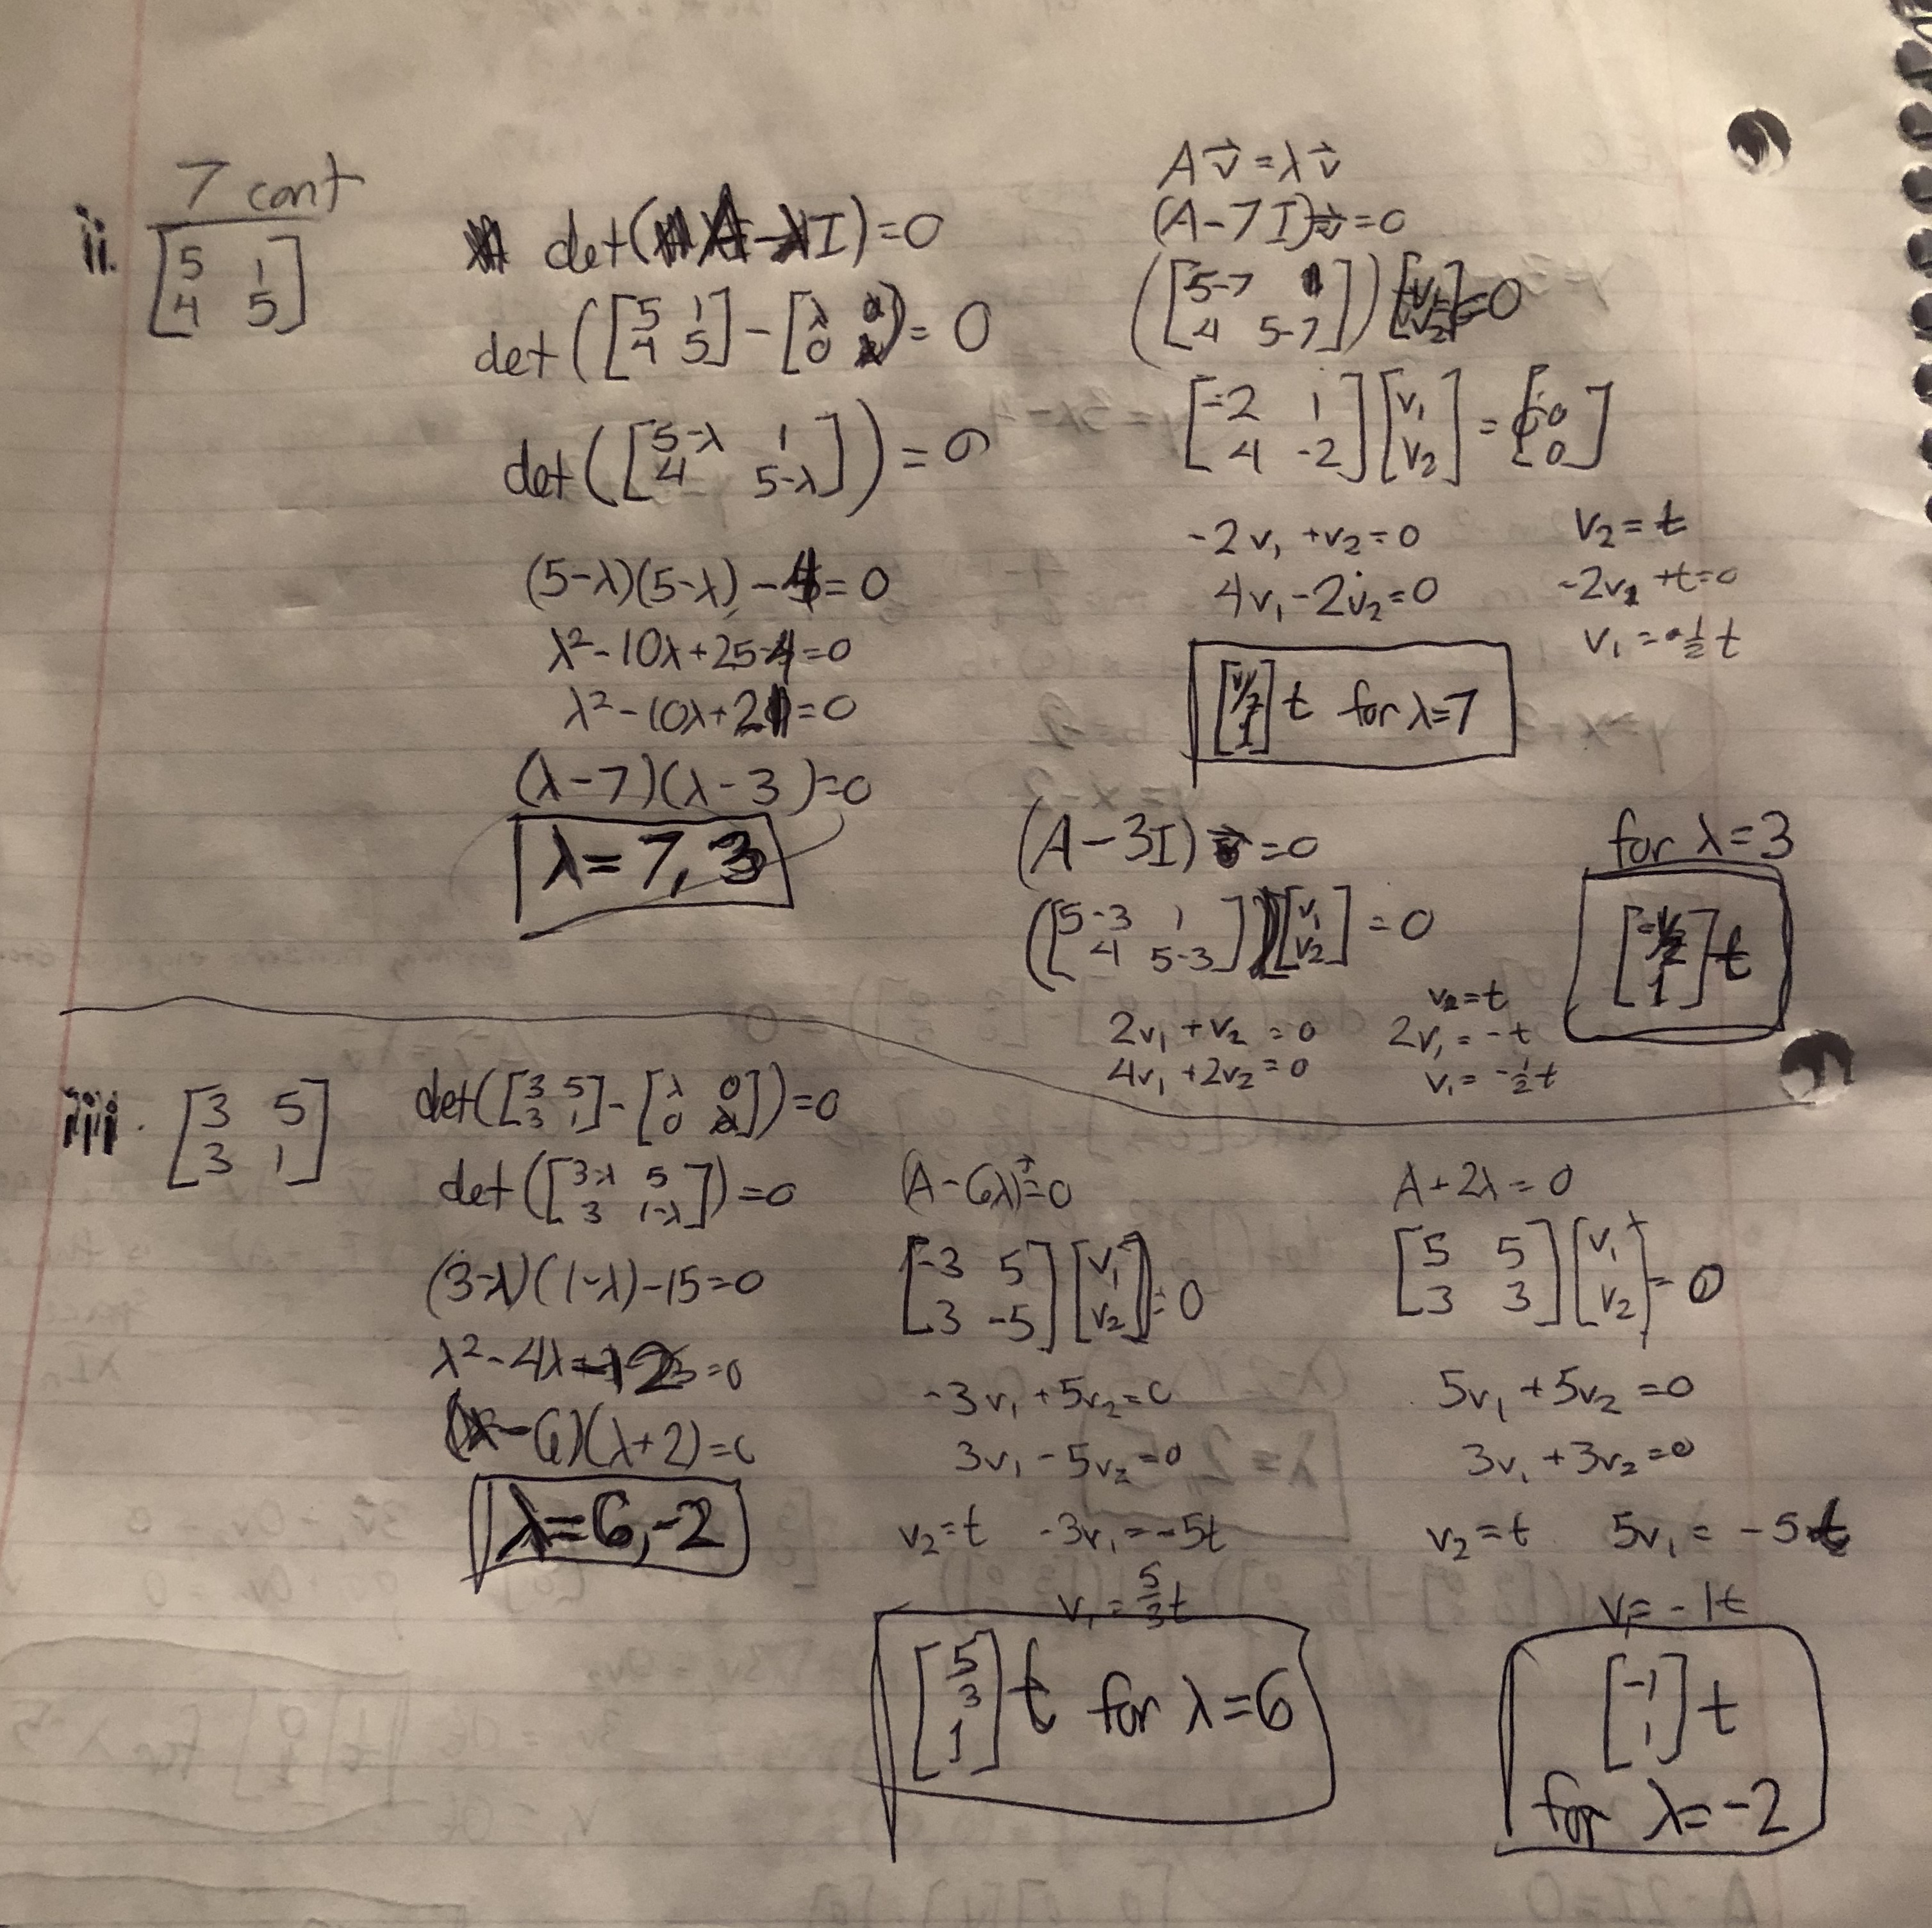 7 cont
ii. [5 1; 4 5]
det(A-λI)=0
det([5 1; 4 5]-[λ 0; 0 λ])=0
det([5-λ 1; 4 5-λ])=0
(5-λ)(5-λ)-4=0
λ²-10λ+25-4=0
λ²-10λ+21=0
(λ-7)(λ-3)=0
λ=7,3
Av⃗=λv⃗
(A-7I)v⃗=0
([5-7 1; 4 5-7])[v₁; v₂]=0
[-2 1; 4 -2][v₁; v₂]=[0; 0]
-2v₁+v₂=0
4v₁-2v₂=0
v₂=t
-2v₁+t=0
v₁=½t
[1/2; 1]t for λ=7
(A-3I)v⃗=0
([5-3 1; 4 5-3])[v₁; v₂]=0
2v₁+v₂=0
4v₁+2v₂=0
v₂=t
2v₁=-t
v₁=-½t
for λ=3
[-1/2; 1]t
iii. [3 5; 3 1]
det([3 5; 3 1]-[λ 0; 0 λ])=0
det([3-λ 5; 3 1-λ])=0
(3-λ)(1-λ)-15=0
λ²-4λ-12=0
(λ-6)(λ+2)=0
λ=6,-2
(A-6λ)⃗=0
[-3 5; 3 -5][v₁; v₂]=0
-3v₁+5v₂=0
3v₁-5v₂=0
v₂=t -3v₁=-5t
v₁=5/3t
[5/3; 1]t for λ=6
A+2λ=0
[5 5; 3 3][v₁; v₂]=0
5v₁+5v₂=0
3v₁+3v₂=0
v₂=t 5v₁=-5t
v₁=-1t
[-1; 1]t
for λ=-2